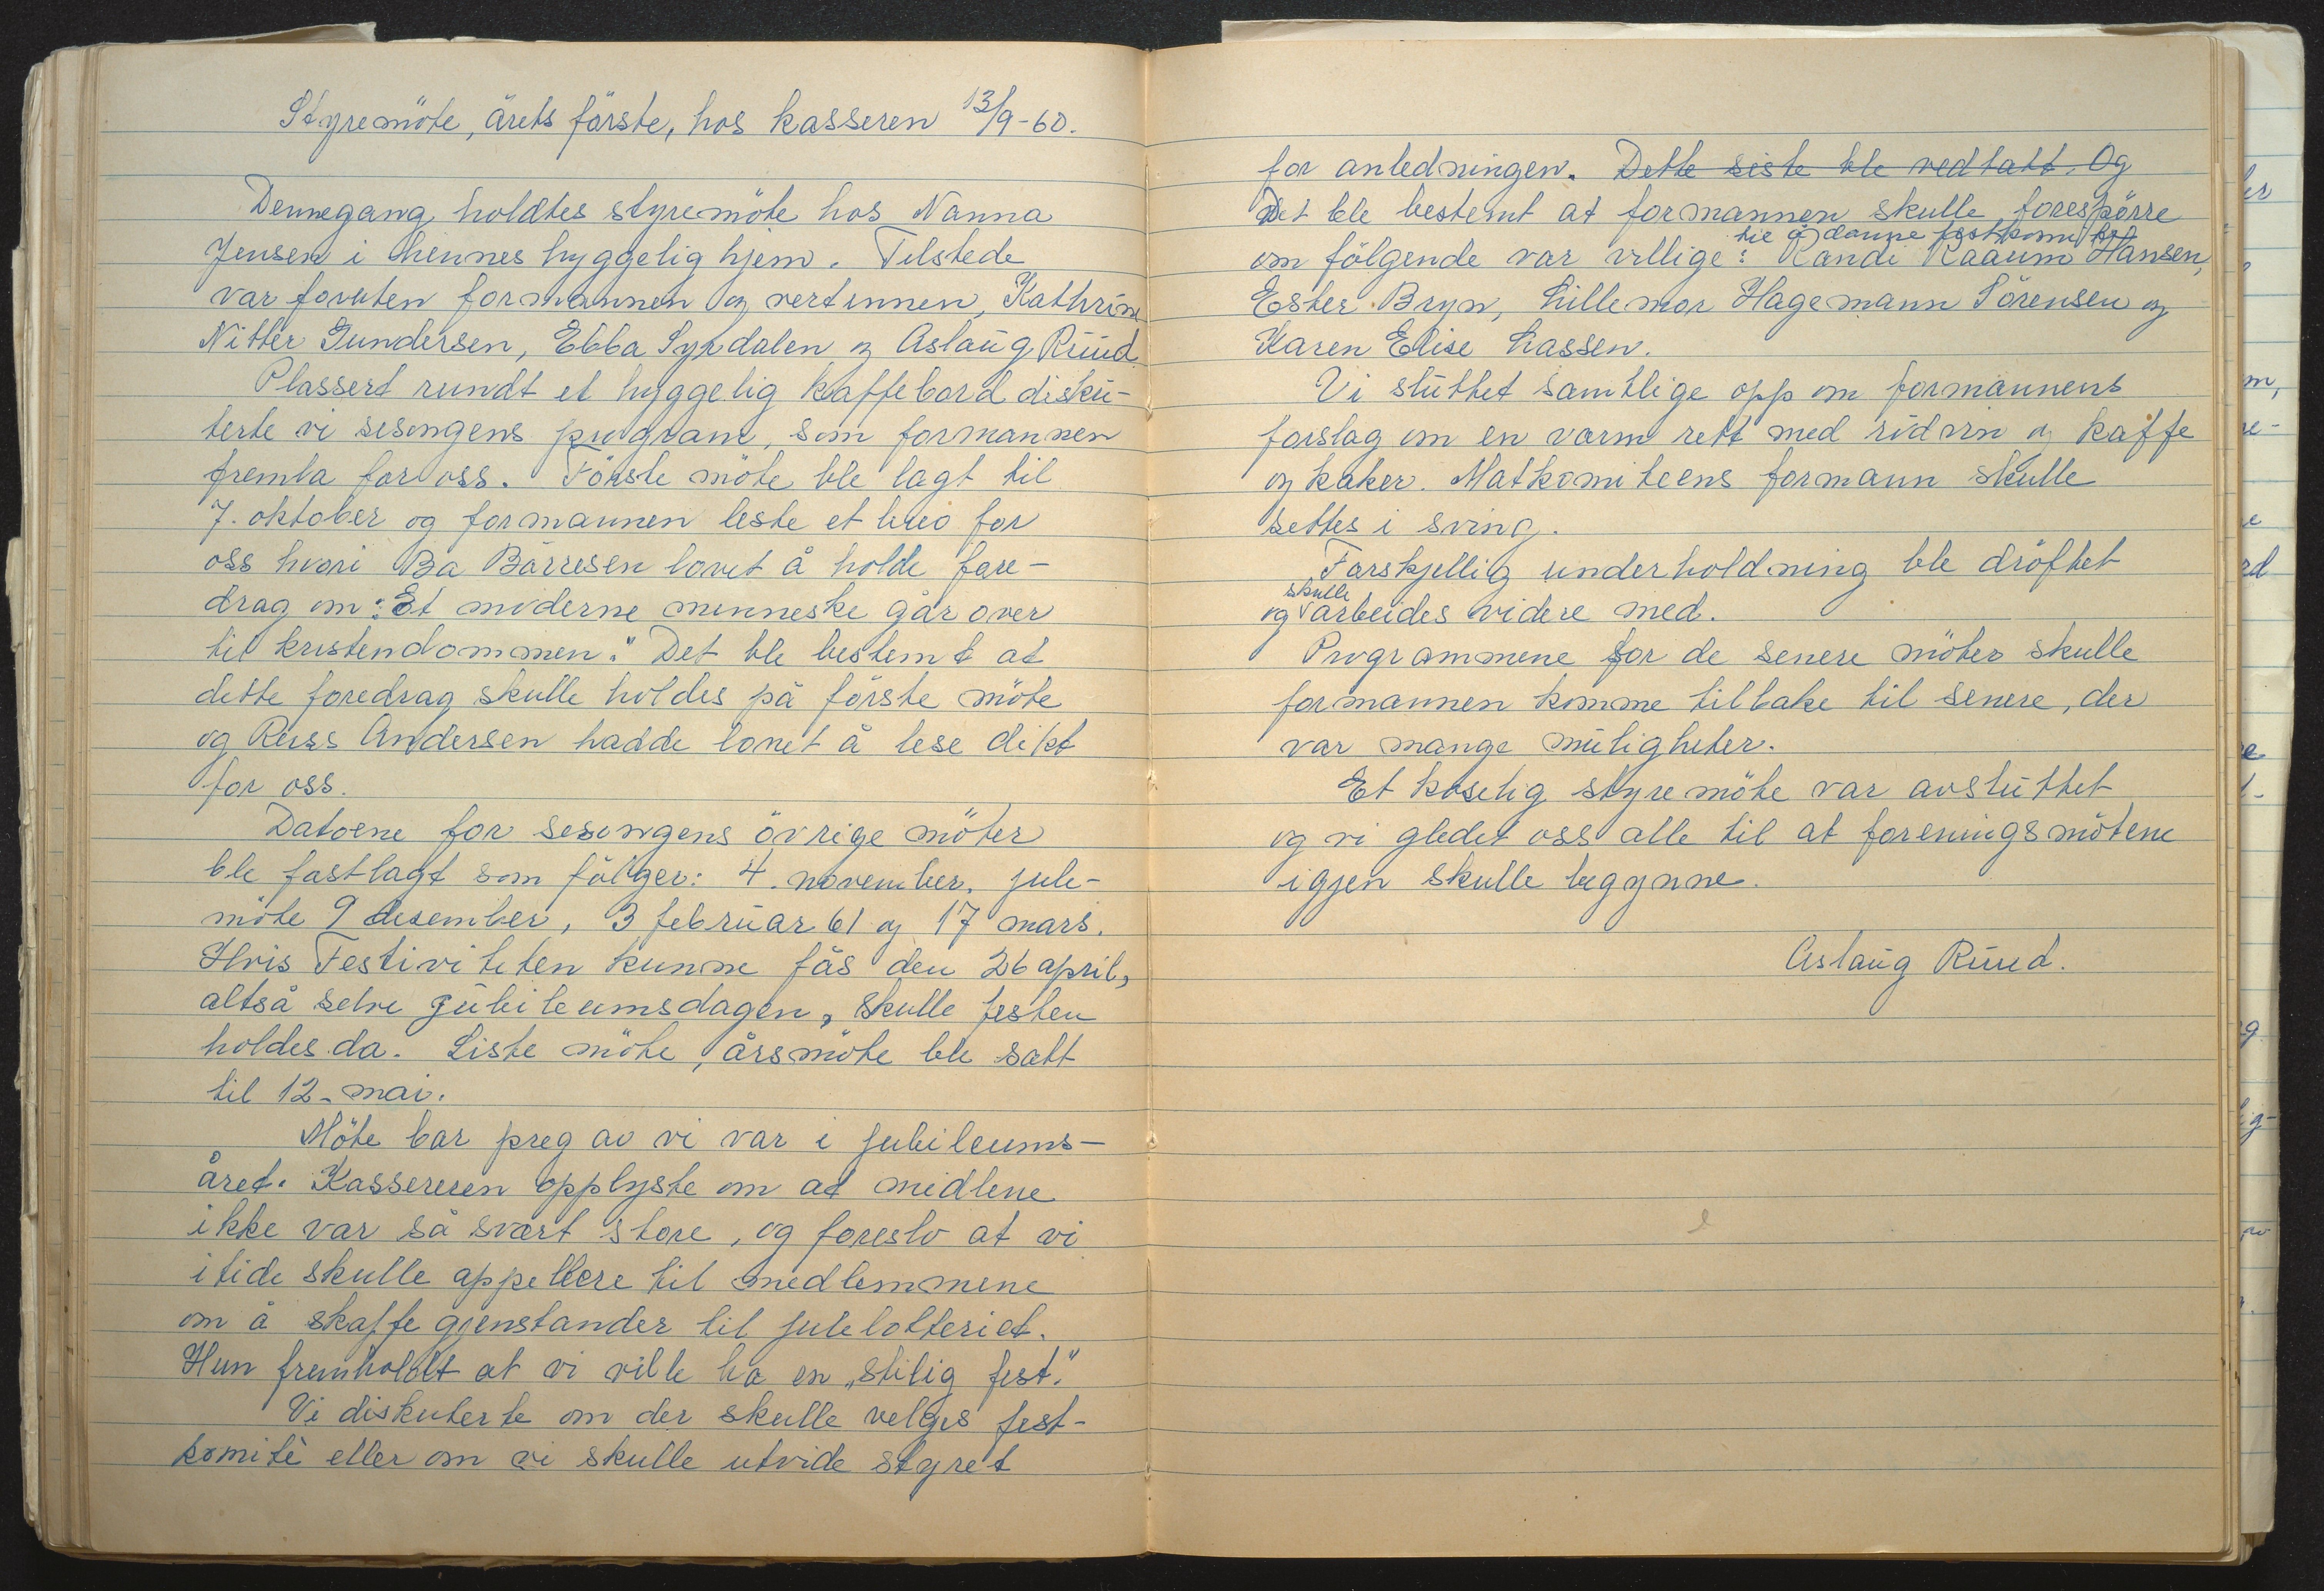 Styremöte, årets förste, hos kasseren 13/9-60.
Dennegang holdtes styremöte hos Nanna
Jensen i hennes hyggelig hjem. Tilstede
var foruten formannen og vertinnen, Kathrine
Nitter Gundersen, Ebba Syrdalen og Aslaug Ruud.
Plassert rundt et hyggelig kaffebord disku-
terte vi sesongens program, som formannen
fremla for oss. Förste möte ble lagt til
7. oktober og formannen leste et brev for
oss hvori Ba Börresen lovet å holde fore-
drag om: Et moderne menneske går over
til kristendommen." Det ble bestemt at
dette foredrag skulle holdes på förste möte
og Reiss Andersen hadde lovet å lese dikt
for oss.
Datoene for sesongens övrige möter
ble fastlagt som fölger: 4. november, jule-
möte 9 desember, 3 februar 61 og 17 mars.
Hvis Festiviteten kunne fås den 26 april,
altså selve jubileumsdagen, skulle festen
holdes da. Siste möte, årsmöte ble satt
til 12. mai.
Möte bar preg av vi var i jubileums-
året. Kassereren opplyste om at midlene
ikke var så svært store, og foreslo at vi
i tide skulle appellere til medlemmene
om å skaffe gjenstander til julelotteriet.
Hun fremholdt at vi ville ha en „stilig fest."
Vi diskuterte om der skulle velges fest-
komitè eller om vi skulle utvide styret
for anledningen. Dette siste ble vedtatt. Og
Det ble bestemt at formannen skulle forespörre
til å danne festkomi
om fölgende var villige: Randi Raaum Hansen,
Ester Bryn, Lillemor Hagemann Sörensen og
Karen Elise Lassen.
Vi sluttet samtlige opp om formannens
forslag om en varm rett med rödvin og kaffe
og kaker. Matkomiteens formann skulle
settes i sving.
Forskjellig underholdning ble dröftet
skulle
og arbeides videre med.
Programmene for de senere möter skulle
formannen komme tilbake til senere, der
var mange muligheter.
Et koselig styremöte var avsluttet
og vi gledet oss alle til at foreningsmötene
igjen skulle begynne.
Aslaug Ruud.